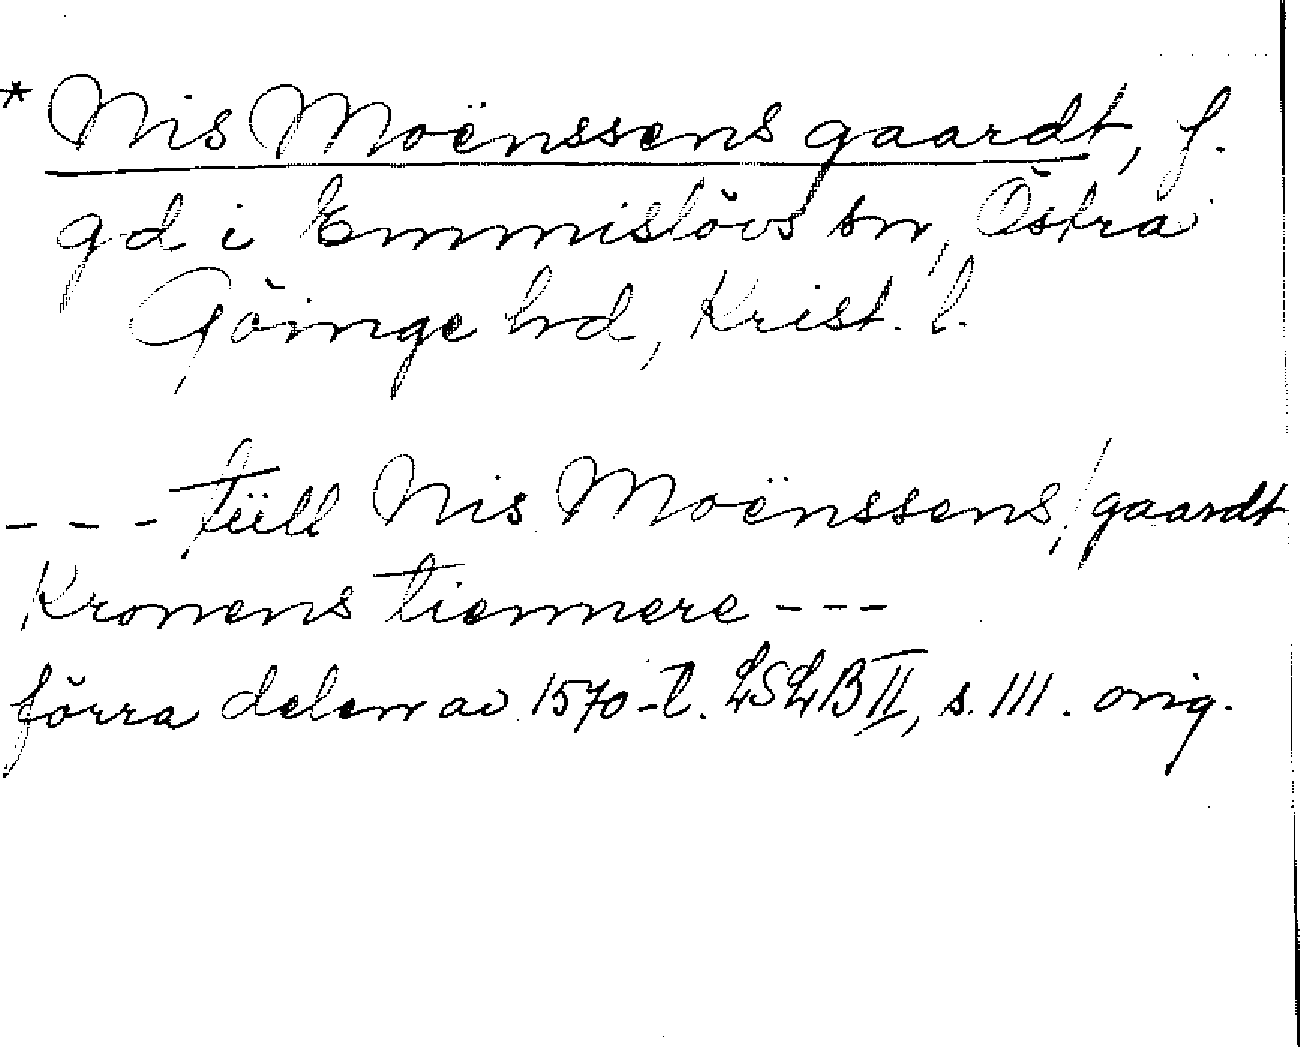 * Nis Moënssens gaardt, f.
gd i Emmislövs sn, Östra
Göinge hd, Krist. l.
--- tiill Nis Moënssens / gaardt
Kronens tiennere ---
förra delen av 1570-t. LSLB II, s. 111. orig.